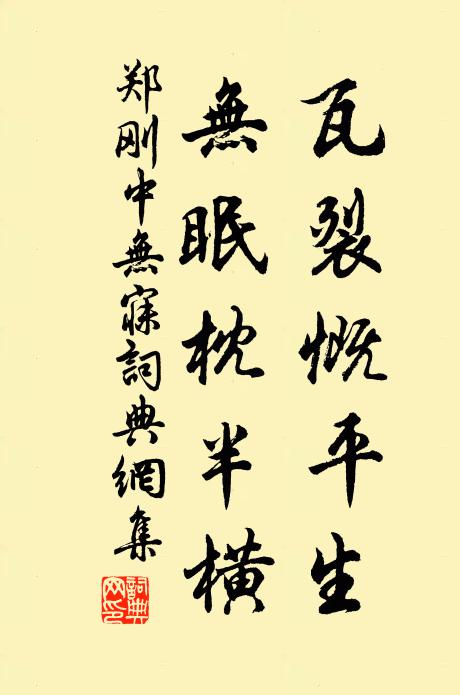 瓦裂慨平生
無眠枕半橫
郑刚中無寐詞典網集
詞典網印